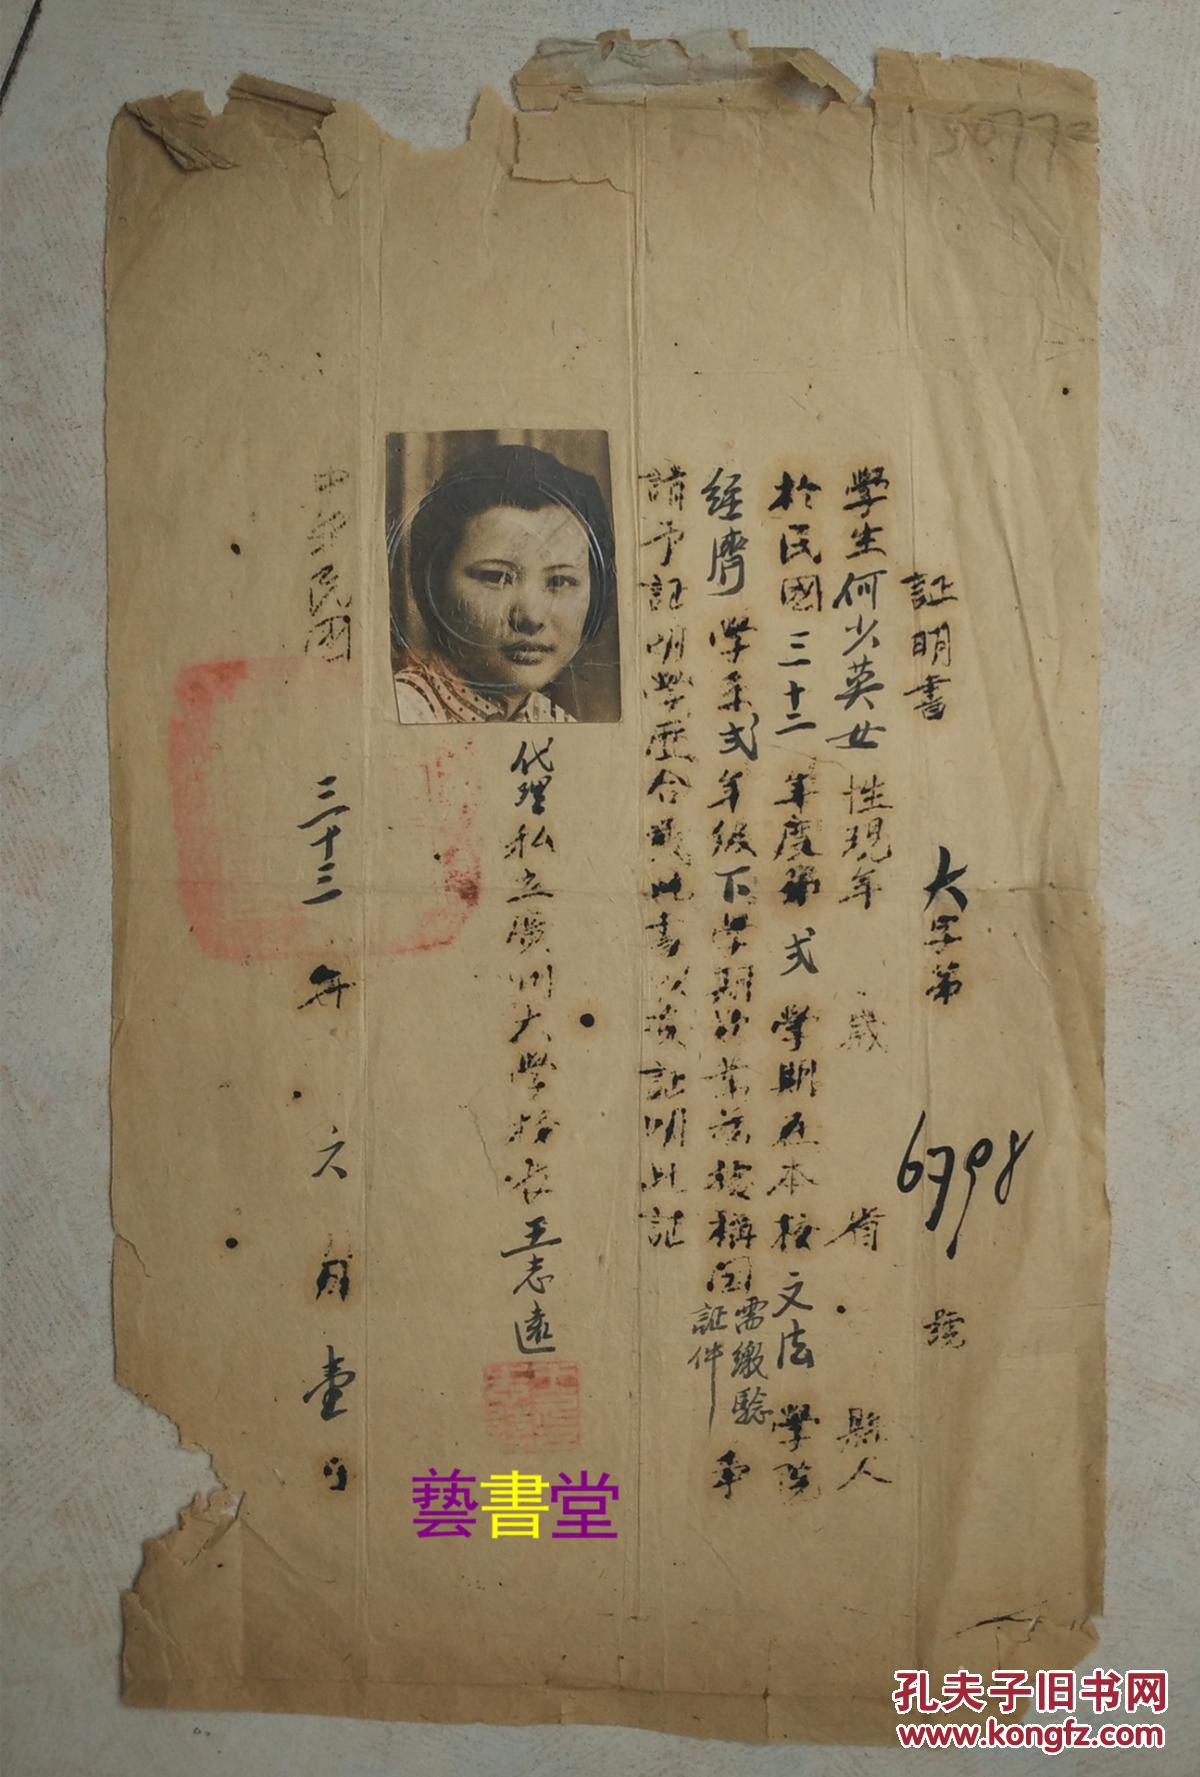 証明書
大字第 6798 號
學生何少英女性現年 歲 省 縣人
於民國三十二年度第弍學期在本校文法學院
經濟學系弍年級下學期肄業茲據稱因需繳驗証件事
請予証明學歷合發此書以資証明此証
代理私立廣州大學校長王志遠
中華民國三十三年六月壹日
藝書堂
孔夫子旧书网
www.kongfz.com